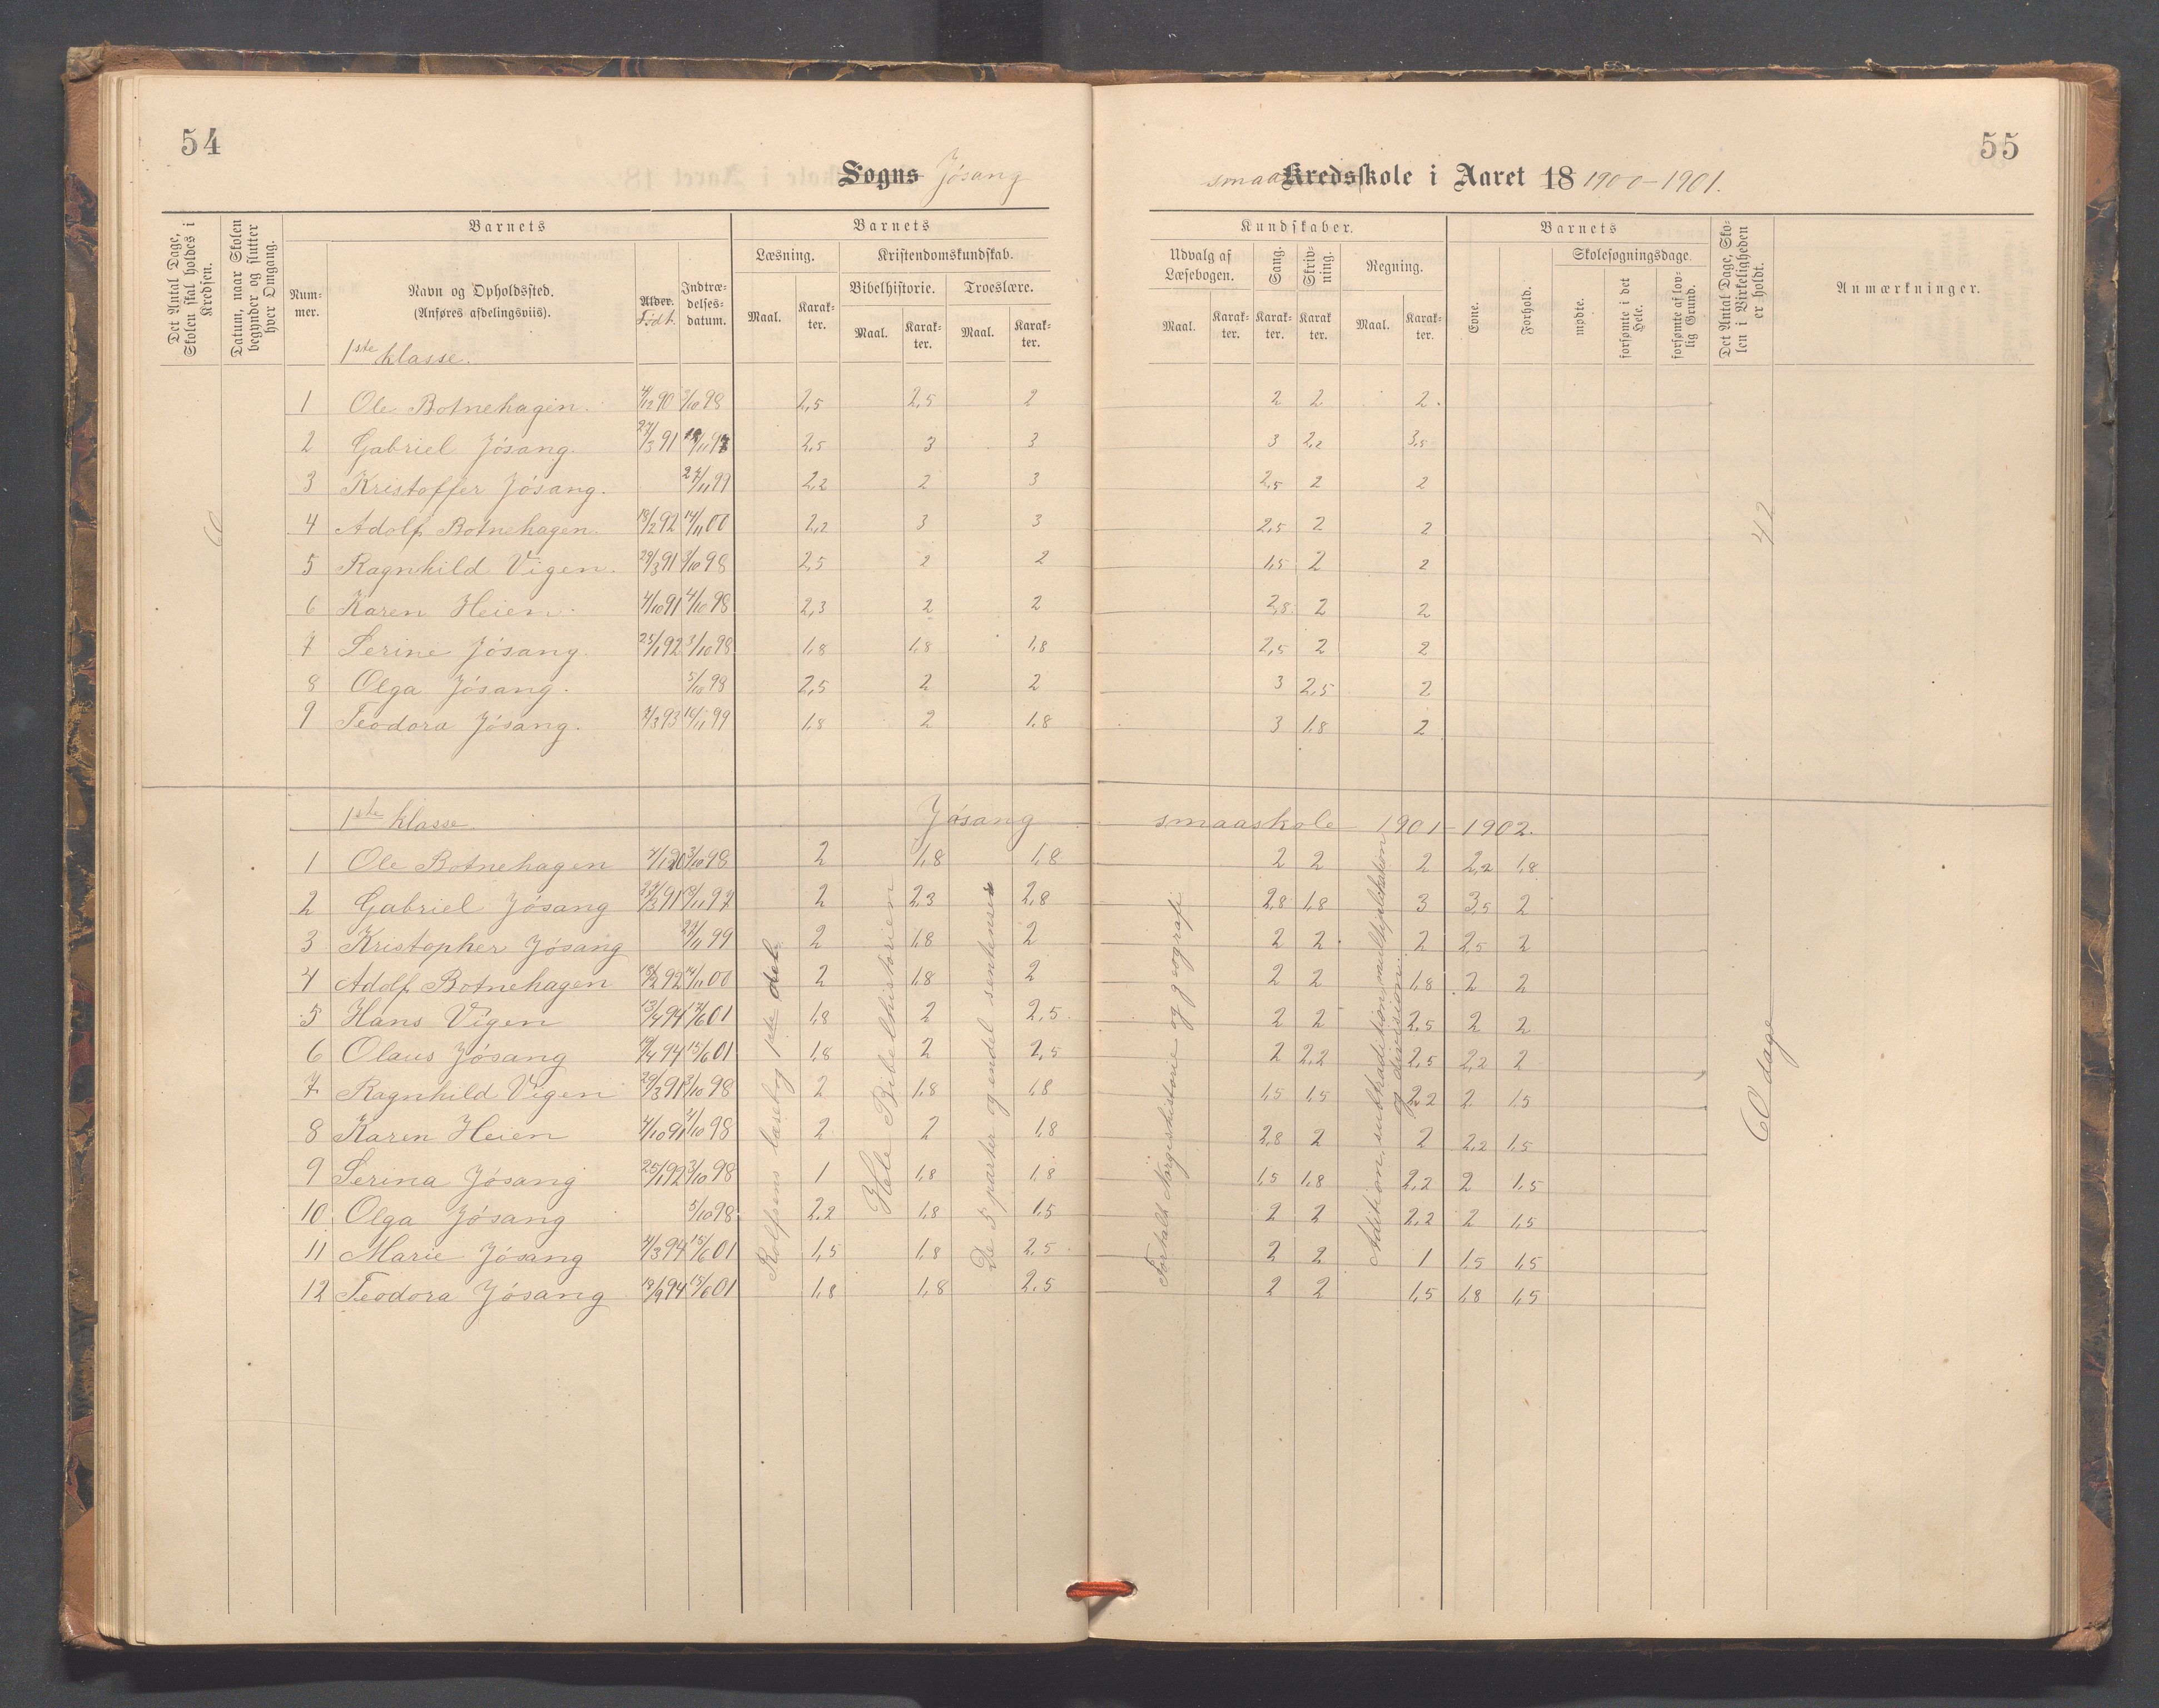 54
55
Sogns Jósang
smaa Kredsskole i Aaret 18 1900-1901.
Det Antal Dage, Skolen skal holdes i Kredsen.
Datum, naar Skolen begynder og slutter hver Omgang.
Barnets
Num-mer.
Navn og Opholdssted.
(Anføres afdelingsviis).
Alder. Født.
Indtræ-delses-datum.
Barnets
Læsning.
Kristendomskundskab.
Bibelhistorie.
Troeslære.
Maal. Karak-ter. Maal. Karak-ter. Maal. Karak-ter.
Kundskaber.
Udvalg af Læsebogen.
Sang.
Skriv-ning.
Regning.
Maal. Karak-ter. Karak-ter. Karak ter. Maal. Karak-ter.
Barnets
Evne.
Forhold.
Skolesøgningsdage.
mødte.
forsømte i det Hele.
forsømte af lov-lig Grund.
Det Antal Dage, Sko-len i Virkeligheden er holdt.
Anmærkninger.
1ste klasse.
1 Ole Botnehagen. 4/12 90 3/10 98 2,5 2,5 2 2 2 2.
2 Gabriel Jósang. 27/3 91 18/11 97 2,5 3 3 3 2,2 3,5
3 Kristoffer Jósang. 27/11 99 2,2 2 3 2,5 2 2
4 Adolf Botnehagen. 18/2 92 14/11 00 2,2 3 3 2,5 2 2
5 Ragnhild Vigen. 29/3 91 3/10 98 2,5 2 2 1,5 2 2
6 Karen Heien. 4/10 91 4/10 98 2,3 2 2 2,8 2 2
7 Serine Jósang. 25/1 92 3/10 98 1,8 1,8 1,8 2,5 2 2
8 Olga Jósang. 5/10 98 2,5 2 2 3 2,5 2
9 Teodora Jósang. 99 1,8 2 1,8 3 1,8 2
42
1ste klasse. Jósang smaaskole 1901-1902.
1 Ole Botnehagen 3/10 98 2 1,8 1,8 2 2 2 2,2 1,8
2 Gabriel Jósang 27/3 91 18/11 97 2 2,3 2,8 2,8 1,8 3 3,5 2
3 Kristopher Jósang 27/11 99 2 1,8 2 2 2 2 2,5 2
4 Adolf Botnehagen 18/2 92 14/11 00 2 1,8 2 2 2 1,8 2 2
5 Hans Vigen 13/4 94 01 1,8 2 2,5 2 2 2,5 2 2
6 Olaus Jósang 94 15/6 01 1,8 2 2,5 2 2,2 2,5 2,2 2
7 Ragnhild Vigen 29/3 91 3/10 98 2 1,8 1,8 1,5 1,5 2,2 2 1,5
8 Karen Heien 4/10 91 4/10 98 2 2 1,8 2,8 2 2 2,2 1,5
9 Serina Jósang 25/1 92 3/10 98 1 1,8 1,8 1,5 1,8 2,2 2 1,5
10 Olga Jósang 5/10 98 2,2 1,8 1,5 2 2 2,2 2 1,5
11 Marie Jósang 94 15/6 01 1,5 1,8 2,5 2 2 1 1,5 1,5
12 Teodora Jósang 18/9 94 15/6 01 1,8 1,8 2,5 2 2 1,5 1,8 1,5
Rolfsens læsebog 1ste del.
Hele Bibelhistorien
De 5 parter og endel sentenser
Fortalt Norgeshistorie og geografi
Addition, subtradition, multiplikation og division.
60 dage